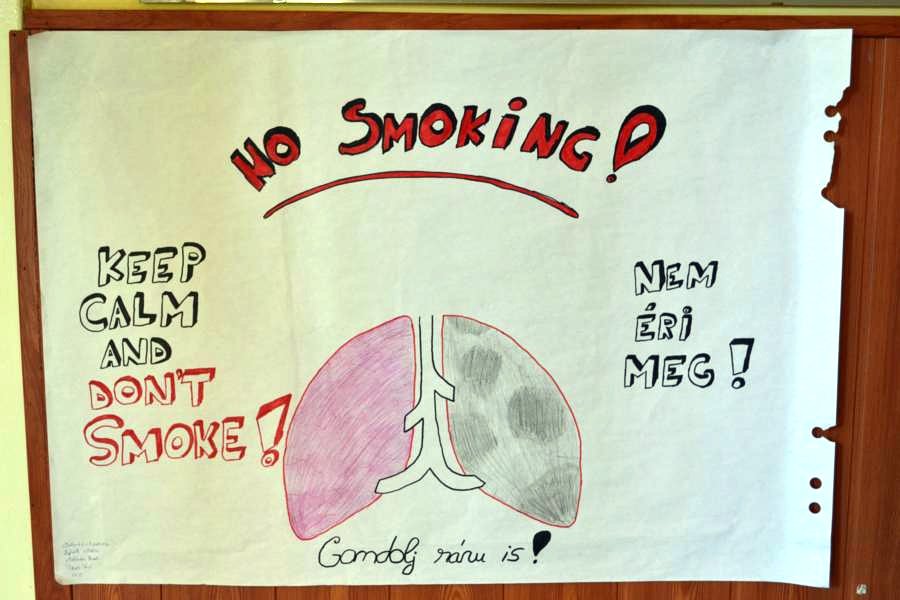 NO SMOKING!
KEEP
CALM
AND
DON'T
SMOKE!
NEM
ÉRI
MEG!
Gondolj ránu is!